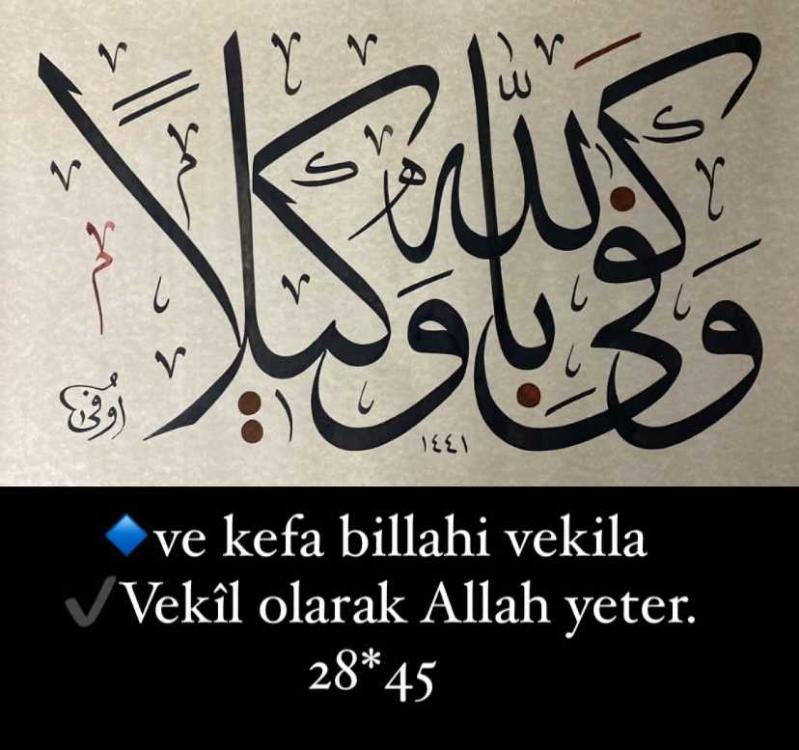 وَكَفَىٰ بِاللّٰهِ وَكِيلًا
١٤٤١
🔷ve kefa billahi vekila
✔Vekîl olarak Allah yeter.
28*45